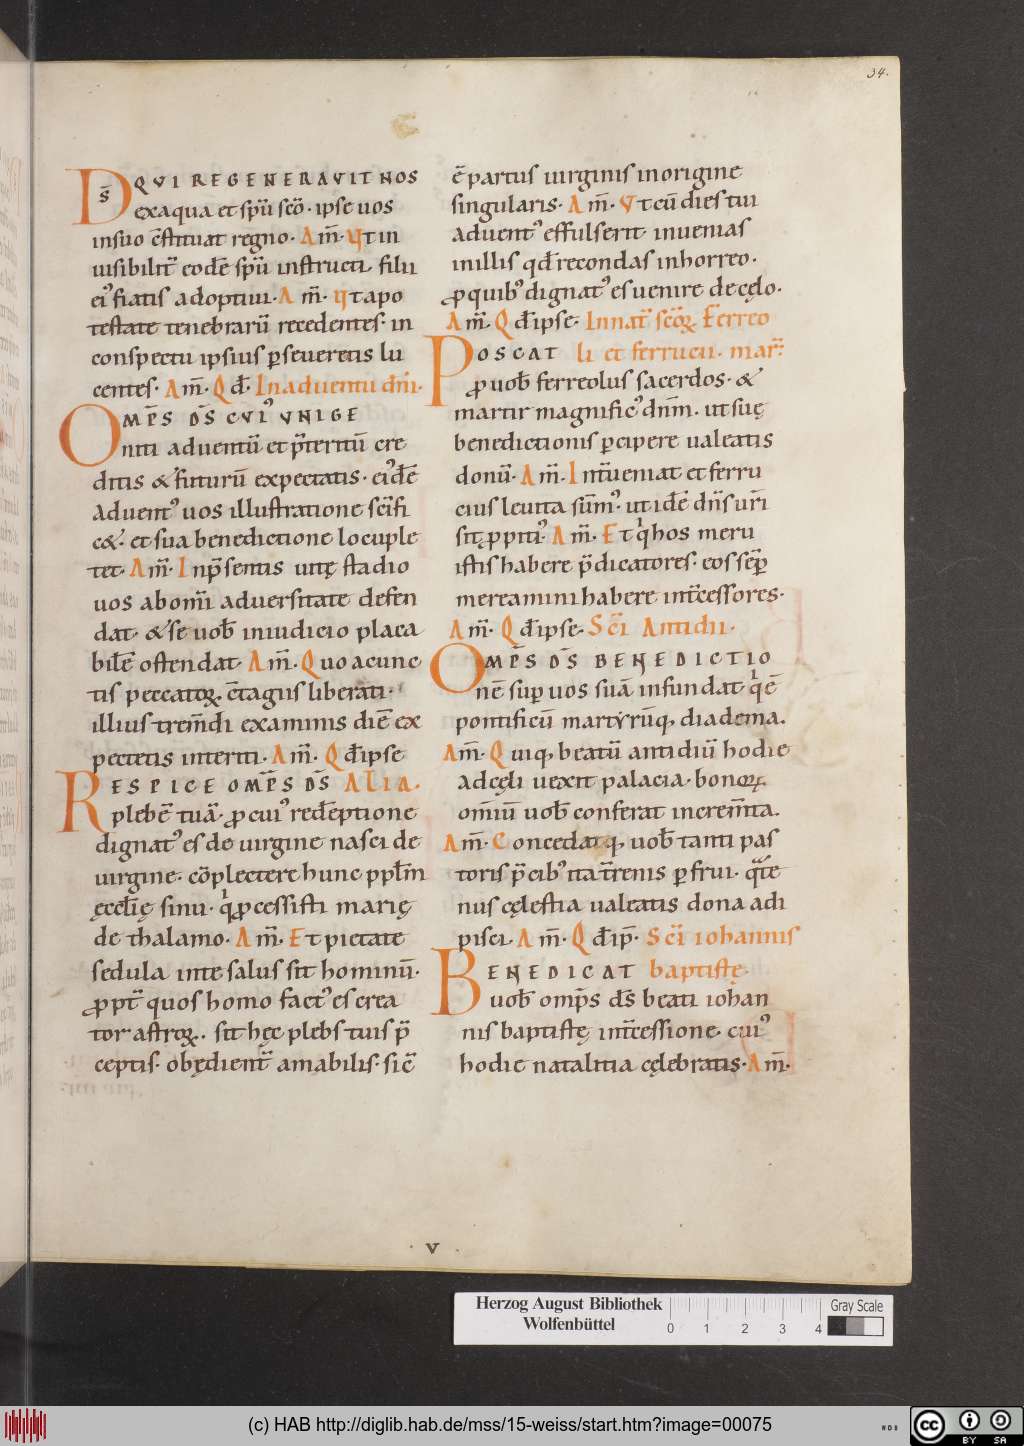 34.
Ds̄ QVI REGENERAVIT NOS
exaqua et spū scō · ipse uos
insuo c̄stituat regno · Am̄ · Vt in
uisibilit̄ eodē spū instructi. filii
ei᾿ fiatis adoptiui · Am̄ · Vt apo
testate tenebrarū recedentes · in
conspectu ipsius ꝑseueretis lu
centes · Am̄ · Qđ · In aduentu dn̄i ·
OMP̄S DS̄ CVI᾿ VNIGE
niti aduentū et p̄teritū cre
ditis & futurū expectatis · ei᾿dē
aduent᾿ uos illustratione sc̄ifi
c& · et sua benedictione locuple
tet · Am̄ · In p̄sentis uitę stadio
uos abom̄i aduersitate defen
dat · & se uob̄ iniudicio placa
bilē ostendat · Am̄ · Quo acunc
tis peccatoꝝ. c̄tagiis liberati ·
illius trem̄di examinis diē ex
pectetis interriti · Am̄ · Qđ ipse
RESPICE OMP̄S DS̄ ALIA.
plebē tuā · ꝓcui᾿ redēptione
dignat᾿ es de uirgine nasci de
uirgine · cōplectere hunc ppl̄m
ęccl̄ię sinu · qͥ ꝓcessisti marię
de thalamo · Am̄ · Et pietate
sedula inte salus sit hominū ·
ꝓpt̄ quos homo fact᾿ es crea
tor astroꝝ · sit hęc plebs tuis p̄
ceptis · obędient̄ amabilis · sic̄
ē partus uirginis inorigine
singularis · Am̄ · Vt cū dies tui
aduent᾿ effulserit inuenias
inillis qđ recondas inhorreo ·
ꝓquib᾿ dignat᾿ es uenire decęlo ·
Am̄ · Qđ ipse · In nat̄ sc̄oꝝ Ferreo
POSCAT li et ferrucii · mar̄ :
ꝓuob̄ ferreolus sacerdos · &
martir magnific᾿ dn̄m · ut suę
benedictionis ꝑcipere ualeatis
donū · Am̄ · Int̄ueniat et ferru
cius leuita sūm᾿ · ut idē dn̄s ur̄i
sit ꝓpiti᾿ · Am̄ · Et qͥ hos meru
istis habere p̄dicatores · eos sēꝑ
mereamini habere int̄cessores ·
Am̄ · Qđ ipse · Sc̄i Antidii ·
OMP̄S DS̄ BENEDICTIO
nē suꝑ uos suā infundat qͥ ē
pontificū martyrūq, diadema.
Am̄ · Quiq, beatū antidiū hodie
adcęli uexit palacia · bonoꝝ
omīū uob̄ conferat increm̄ta.
Am̄ · Concedatq, uob̄ tanti pas
toris p̄cib᾿ ita t̄renis ꝑfrui · qͣte
nus cęlestia ualeatis dona adi
pisci · Am̄ · Qđ ip̄ · Sc̄i iohannis
BENEDICAT baptistę
uob̄ omp̄s ds̄ beati iohan
nis baptistę int̄cessione cui᾿
hodie natalitia cęlebratis · Am̄ ·
· V ·
Herzog August Bibliothek
Wolfenbüttel
0 1 2 3 4
Gray Scale
(c) HAB http://diglib.hab.de/mss/15-weiss/start.htm?image=00075
WDB
cc BY SA